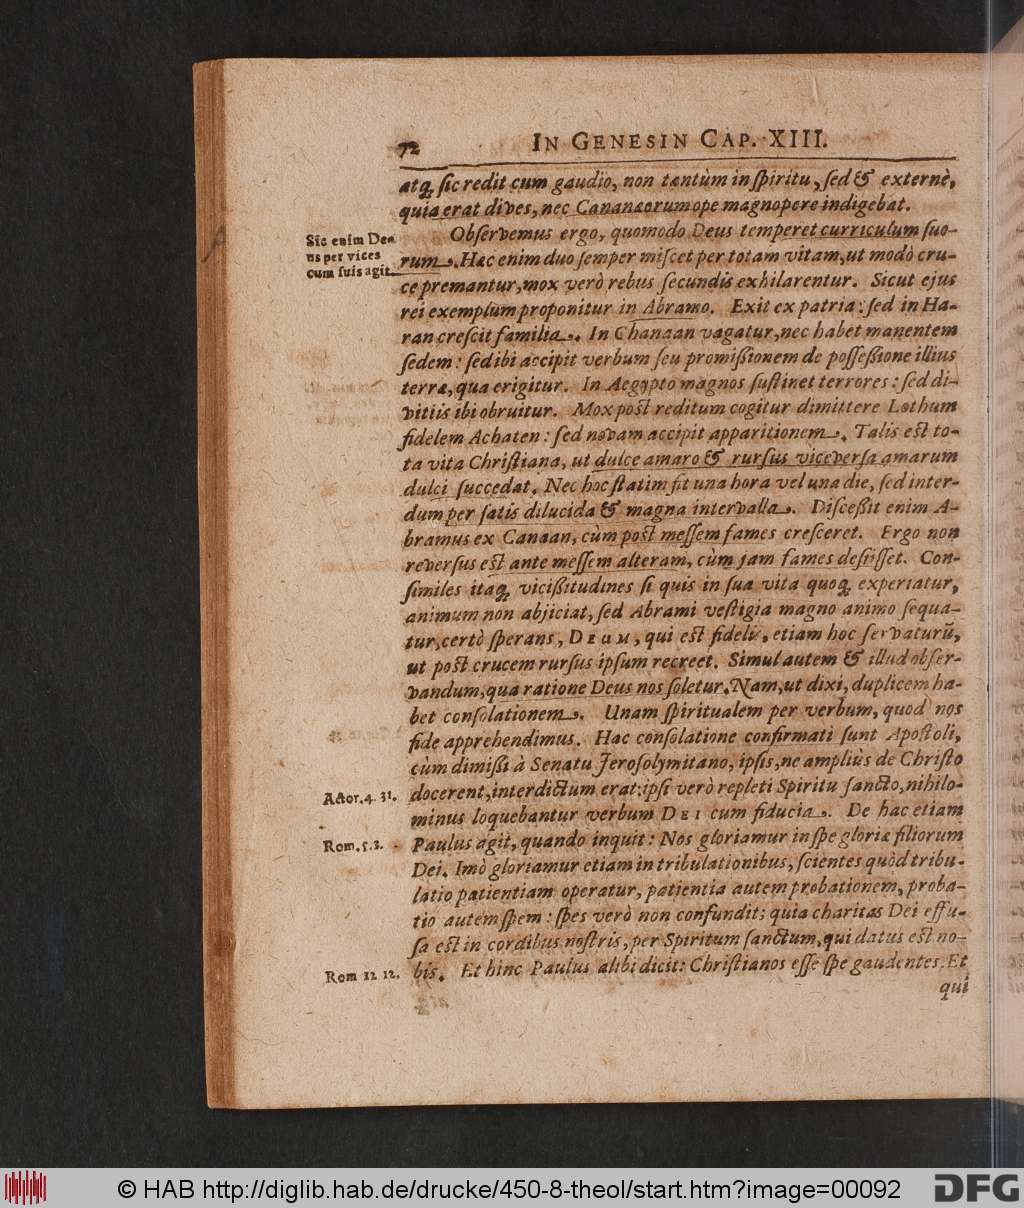 72 IN GENESIN CAP. XIII.
atq; ſic redit cum gaudio, non tantùm in ſpiritu, ſed & externè,
quia erat dives, nec Cananæorum ope magnopere indigebat.
Obſervemus ergo, quomodo Deus temperet curriculum ſuo-
rum. Hæc enim duo ſemper miſcet per totam vitam, ut modò cru-
ce premantur, mox verò rebus ſecundis exhilarentur. Sicut ejus
rei exemplum proponitur in Abramo. Exit ex patria: ſed in Ha-
ran creſcit familia. In Chanaan vagatur, nec habet manentem
ſedem: ſed ibi accipit verbum ſeu promißionem de poſſeßione illius
terræ, qua erigitur. In Aegypto magnos ſuſtinet terrores: ſed di-
vitiis ibi obruitur. Mox poſt reditum cogitur dimittere Lothum
fidelem Achaten: ſed novam accipit apparitionem. Talis eſt to-
ta vita Chriſtiana, ut dulce amaro & rurſus viceverſa amarum
dulci ſuccedat. Nec hoc ſtatim fit una hora vel una die, ſed inter-
dum per ſatis dilucida & magna intervalla. Diſceßit enim A-
bramus ex Canaan, cùm poſt meſſem fames creſceret. Ergo non
reverſus eſt ante meſſem alteram, cùm jam fames deſiiſſet. Con-
ſimiles itaq; vicißitudines ſi quis in ſua vita quoq; experiatur,
animum non abjiciat, ſed Abrami veſtigia magno animo ſequa-
tur, certò ſperans, DEUM, qui eſt fidelis, etiam hoc ſervaturū,
ut poſt crucem rurſus ipſum recreet. Simul autem & illud obſer-
vandum, qua ratione Deus nos ſoletur. Nam, ut dixi, duplicem ha-
bet conſolationem. Unam ſpiritualem per verbum, quod nos
fide apprehendimus. Hac conſolatione confirmati ſunt Apoſtoli,
cùm dimißi à Senatu Jeroſolymitano, ipſis, ne ampliùs de Chriſto
docerent, interdictum erat: ipſi verò repleti Spiritu ſancto, nihilo-
minus loquebantur verbum DEI cum fiducia. De hac etiam
Paulus agit, quando inquit: Nos gloriamur in ſpe gloriæ filiorum
Dei. Imò gloriamur etiam in tribulationibus, ſcientes quòd tribu-
latio patientiam operatur, patientia autem probationem, proba-
tio autem ſpem: ſpes verò non confundit; quia charitas Dei effu-
ſa eſt in cordibus noſtris, per Spiritum ſanctum, qui datus eſt no-
bis. Et hinc Paulus alibi dicit: Chriſtianos eſſe ſpe gaudentes. Et
qui
Sic enim De-
us per vices
cum ſuis agit.
Actor. 4. 31.
Rom. 5. 3.
Rom 12 12.
© HAB http://diglib.hab.de/drucke/450-8-theol/start.htm?image=00092
DFG